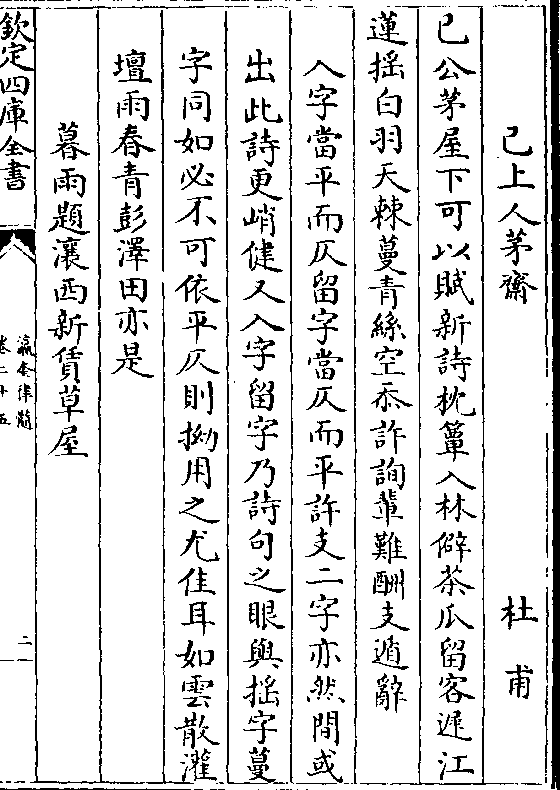 己上人茅齋 杜甫
已公茅屋下可以賦新詩枕簟入林僻茶瓜留客遲江
蓮揺白羽天棘蔓青絲空忝許詢輩難酬支遁辭
入字當平而仄留字當仄而平許支二字亦然間或
出此詩更峭健又入字留字乃詩句之眼與揺字蔓
字同如必不可依平仄則拗用之尤佳耳如雲散灌
壇雨春青彭澤田亦是
暮雨題瀼西新賃草屋
欽定四庫全書
瀛奎律髓
卷二十五
二